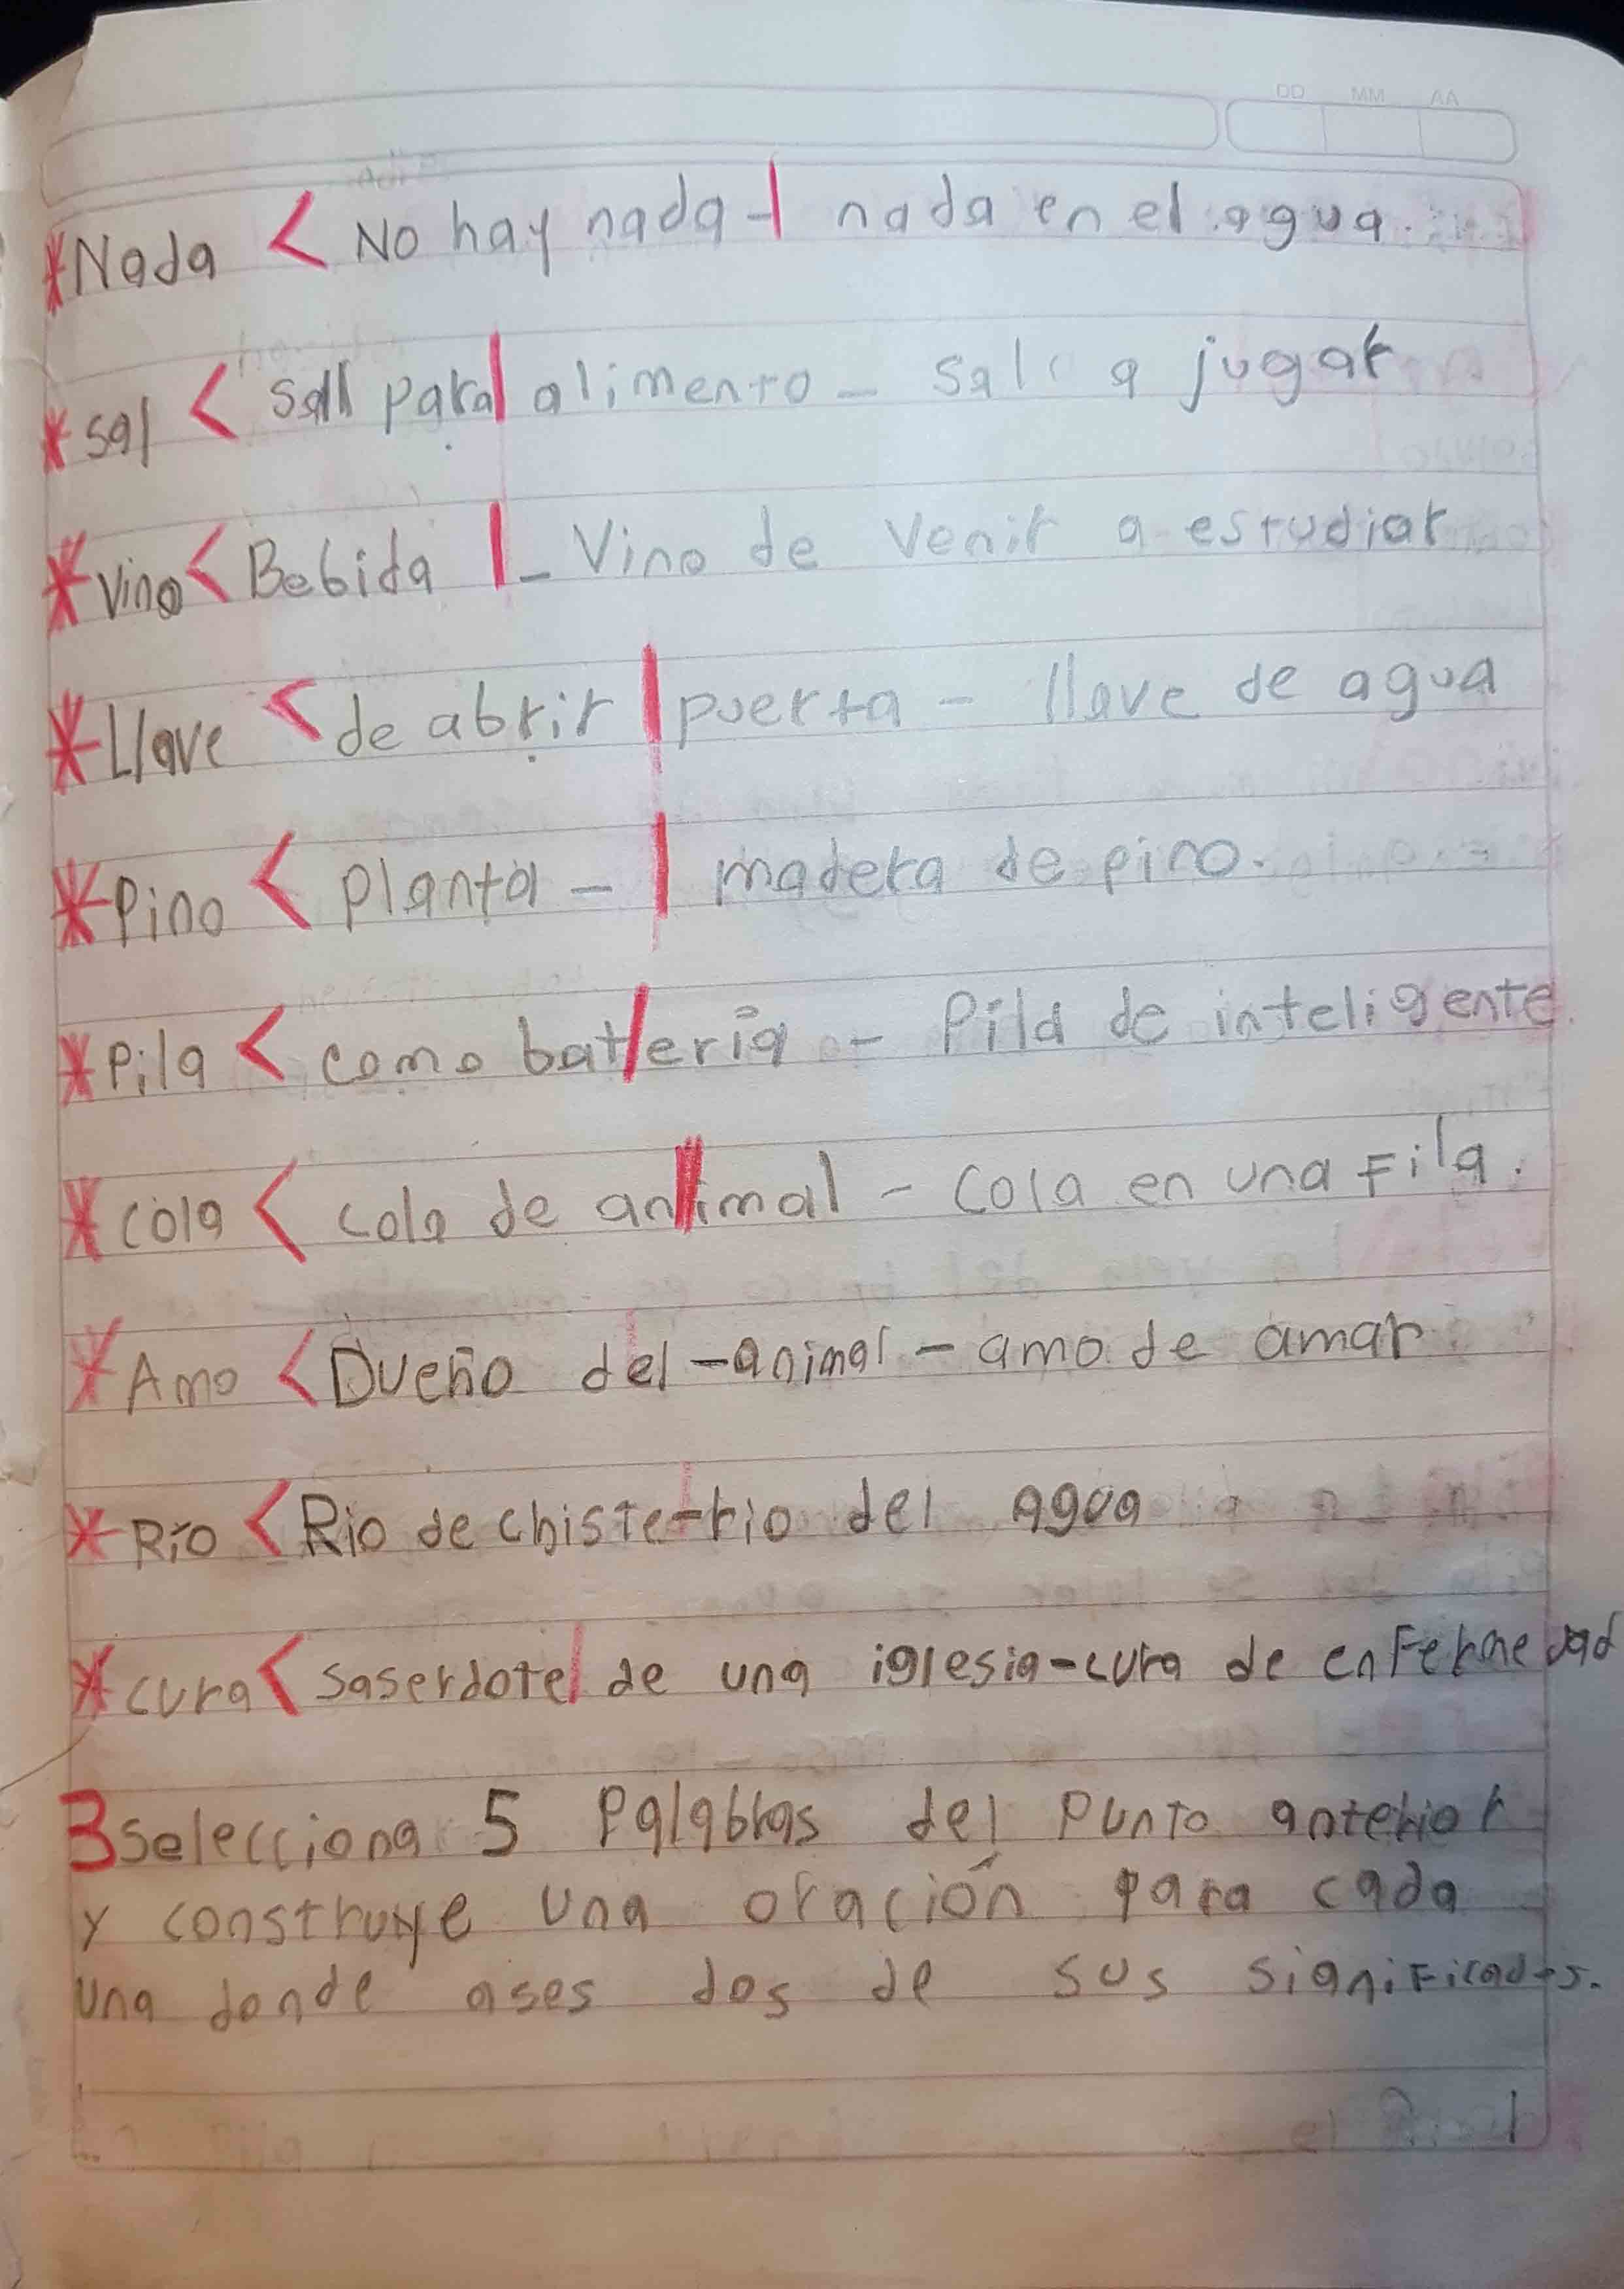 DD MM AA
*Nada < No hay nada - | nada en el agua.
*sal < Sall para | alimento - Sal a jugar
*Vino < Bebida | - Vino de Venir a estudiar
*Llave < de abrir | puerta - llave de agua
*Pino < planta - | madera de pino.
*Pila < como bat|eria - Pila de inteligente.
*cola < cola de an|imal - Cola en una Fila.
*Amo < Dueño del - animal - amo de amar
*Río < Rio de chiste - rio del agua
*cura < saserdote | de una iglesia - cura de enfermedad
3 Selecciona 5 Palabras del Punto anterior
y construye una oración para cada
una donde ases dos de sus significados.